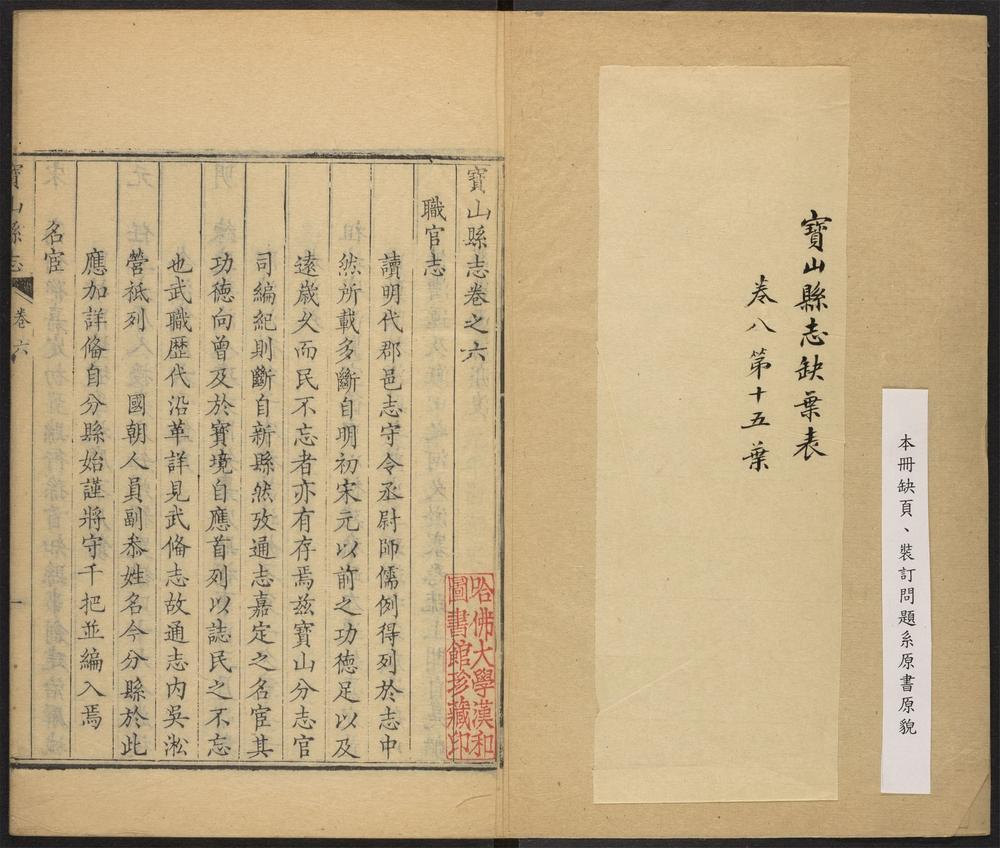 本冊缺頁、裝訂問題系原書原貌
寶山縣志缺葉表
卷八第十五葉
寶山縣志卷之六
職官志
讀明代郡邑志守令丞尉師儒例得列於志中
然所載多斷自明初宋元以前之功德足以及
遠歲久而民不忘者亦有存焉茲寶山分志官
司編紀則斷自新縣然攷通志嘉定之名宦其
功德向曾及於寶境自應首列以誌民之不忘
也武職歷代沿革詳見武俻志故通志內吳淞
營祗列
國朝人員副叅姓名今分縣於此
應加詳俻自分縣始謹將守千把並編入焉
名宦
寶山縣志
卷六
一
哈佛大學漢和
圖書館珍藏印